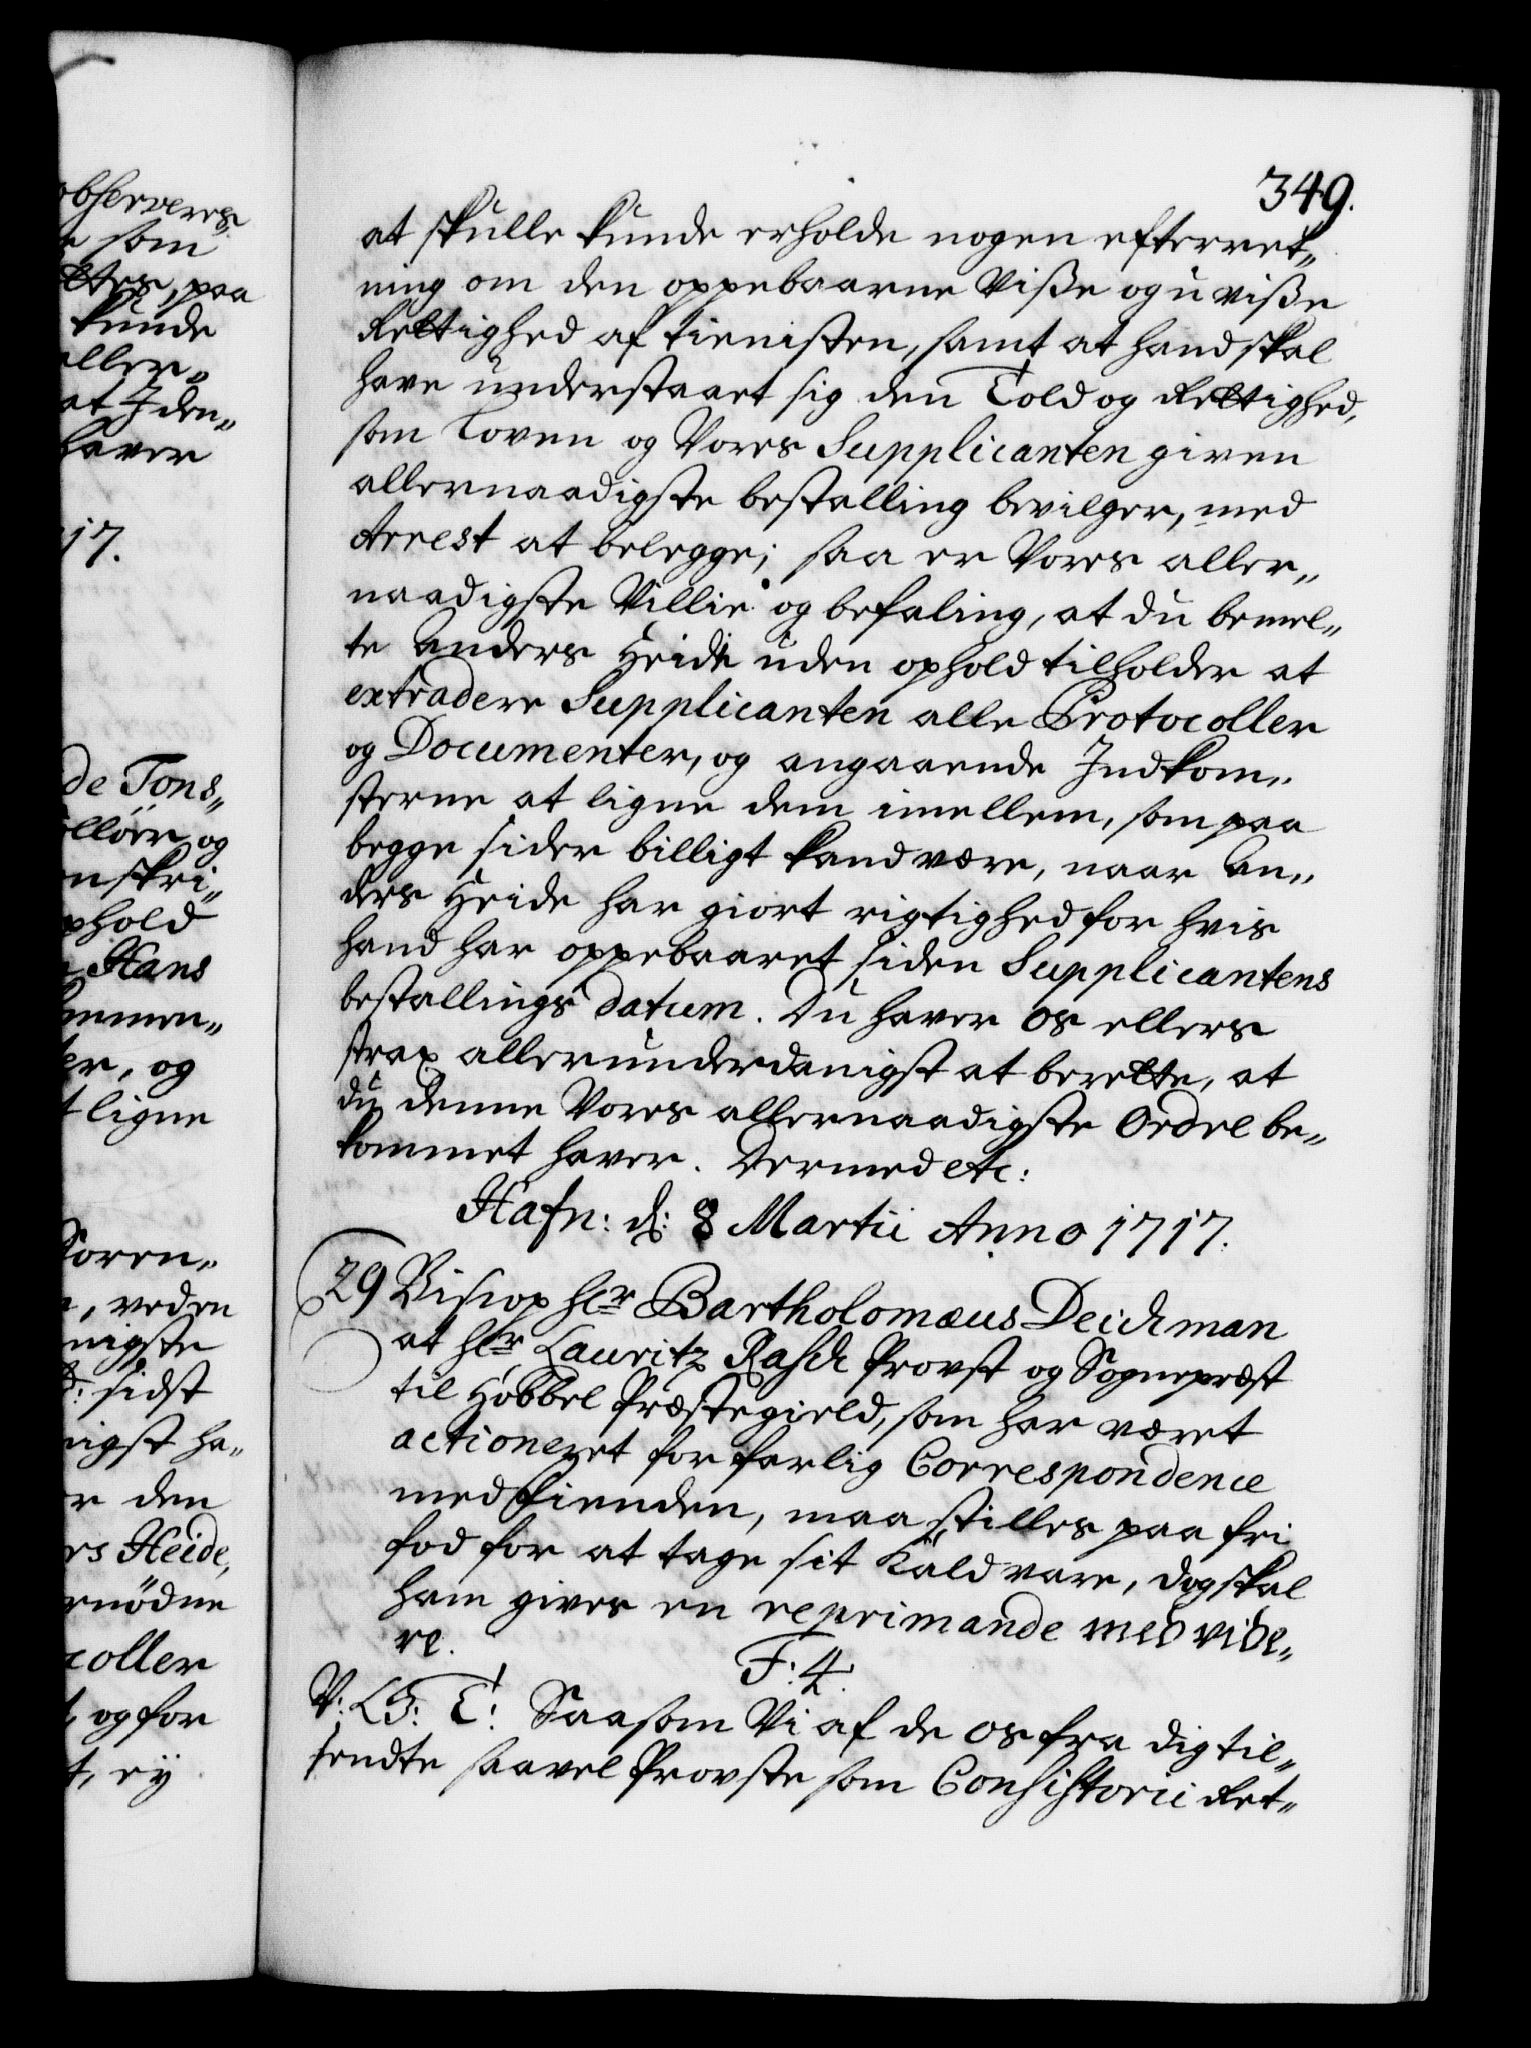 observeres
som
paa
kunde
eller„
at Iden„
haver
17.
de Tons„
og
nskri„
ophold
Hans
er, og
ligne
Soren„
, veden
nigste
: sidst
nigst ha„
r den
rs Heide,
rnödne
coller
, og for
t, eÿ
349.
at skulle kunde erholde nogen efterret„
ning om den oppebaarne Viße og uviße
Rettighed af tienisten, samt at hand skal
have understaaet sig den Told og Rettighed,
som Loven og Vores Supplicanten given
allernaadigste bestalling bevilger, med
Arrest at belegge; saa er Vores aller„
naadigste Villie og befaling, at du bemel„
te Anders Heide uden ophold tilholder at
extradere Supplicanten alle Protocoller
og Documenter, og angaaende Indkom„
sterne at ligne dem imellem, som paa
begge sider billigt kand være, naar An„
ders Heide har giort rigtighed for hvis
hand har oppebaaret siden Supplicantens
bestallings datum. Du haver os ellers
strax allerunderdanigst at berette, at
du denne Vores allernaadigste Ordre be„
kommet haver. Dermed etc:
Hafn: d: 8 Martii Anno 1717.
29 Biscop hr Bartholomæus Deichman
at hr Lauritz Rasch Provst og Sognepræst
til Höbbel Præstegield, som har været
actioneret for farlig Correspondence
med fienden, maa stilles paa fri
fod for at tage sit Kald vare, dog skal
ham gives en reprimande med vide„
re.
F: 4.
V: G: T: Saasom Vi af de os fra dig til„
sendte saavel Provste som Consistorii Ret„